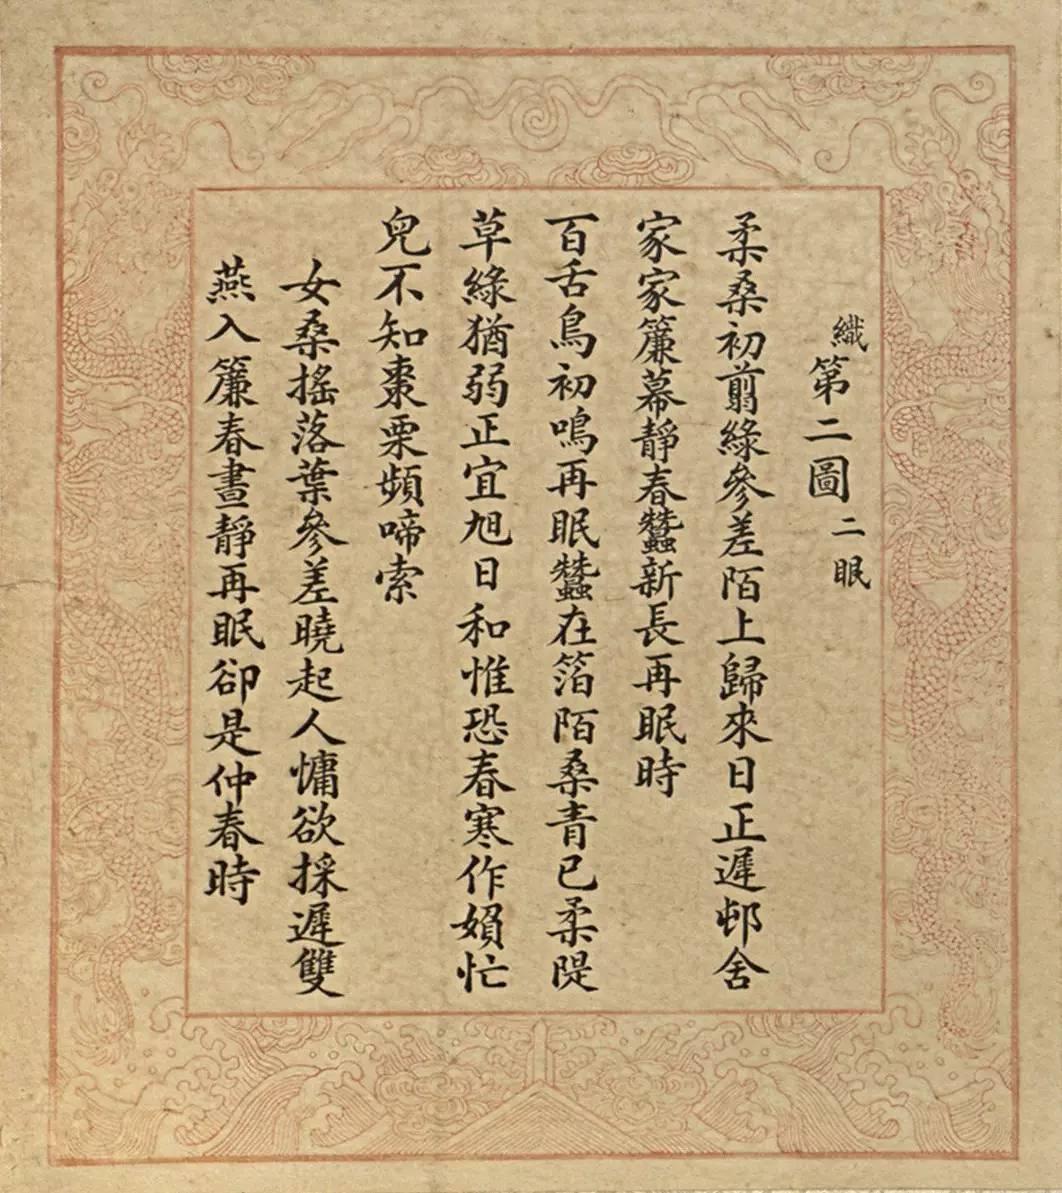 織第二圖二眠
柔桑初翦綠參差陌上歸來日正遲邨舍
家家簾幕靜春蠶新長再眠時
百舌鳥初鳴再眠蠶在箔陌桑青已柔隄
草綠猶弱正宜旭日和惟恐春寒作娟忙
兒不知棗栗頻啼索
女桑搖落葉參差曉起人慵欲採遲雙
燕入簾春晝靜再眠卻是仲春時